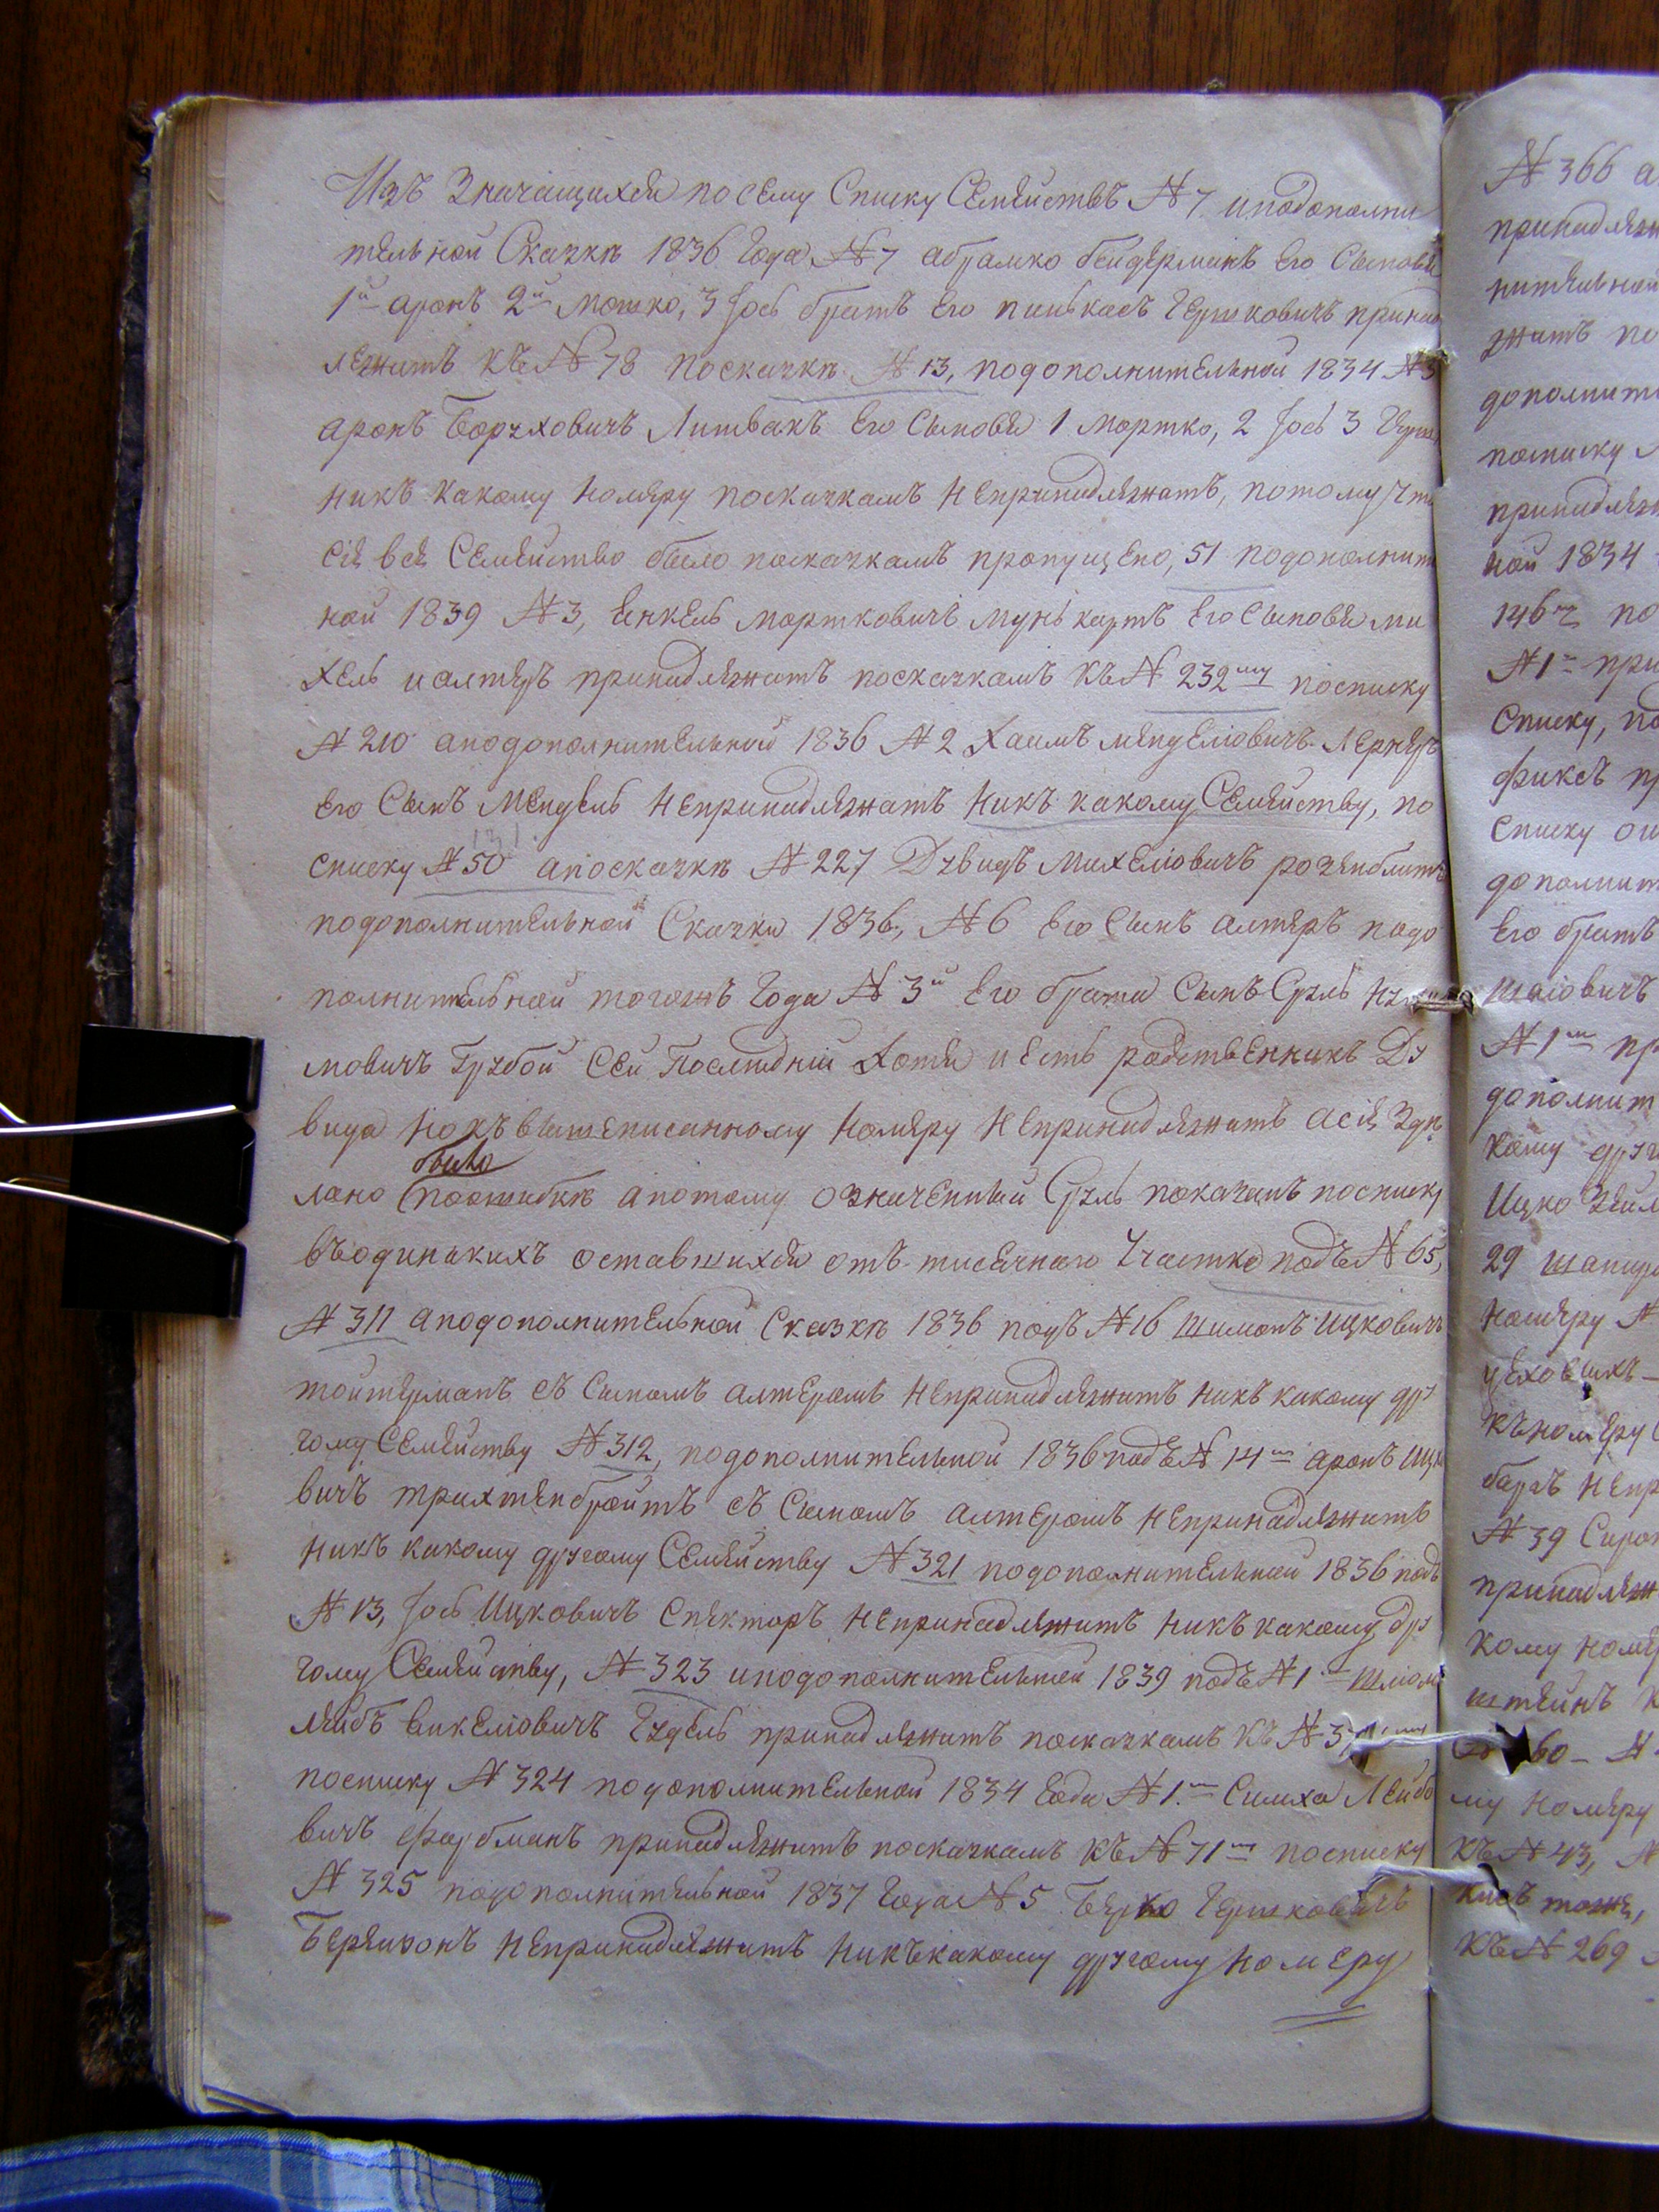 Изъ Значащихся посему Списку Семействъ №7 иподополни
тельной Сказки 1836 года №7 абрамко бейдерманъ Его Сыновья
1й аронъ 2й Мошко, 3 Іось братъ Его пинькасъ Гершковичъ принад
лежитъ къ №78 посказки №13, подополнительной 1834 №3
аронъ Борухoвичъ Литвакъ Его Сыновья 1 Мортко, 2 Іось 3
никъ какому номеру посказкамъ непринадлежатъ, потому что
сіе все Семейство было посказкамъ пропущено, 51 подополнит
ной 1839 №3, Енкель мортковичъ Его Сыновья ми
хель иалтеръ принадлежатъ посказкамъ къ №232му посписку
№210 аподополнительной 1836 №2 Хаимъ менделіовичъ Лернеръ
Его Сынъ Мендель непринадлежатъ никъ какому Семейству, по
списку №50 апосказки №227 Дувидъ михеліовичъ розенблитъ
подополнительной Сказки 1836, №6 Его Сынъ алтеръ подо
полнительной тогожъ года №3й Его брата Сынъ Сруль
мовичъ Грубой Сей Последній хотя и есть родственникъ Ду
вида нокъ вышеписанному номеру непринадлежитъ асіе Зде
лано было поошибки апотому означенный Сруль показанъ посписку
въодинькихъ оставшихся отъ тисячнаго Участка подъ №65,
№311 аподополнительной Сказки 1836 подъ №16 шимонъ ицковичъ
тойтерманъ съ Сыномъ алтеромъ непринадлежитъ никъ какому дру
гому Семейству №312, подополнительной 1836 подъ №14мъ аронъ ицко
вичъ трихтенбройтъ съ Сыномъ алтеромъ непринадлежитъ
никъ какому другому Семейству №321 подополнительной 1836 подъ
№13, Іось Ицковичъ Спекторъ непринадлежитъ никъ какому дру
гому Семейству, №323 иподополнительной 1839 подъ №1 шліом
лейбъ принадлежитъ посказкамъ къ
посписку №324 подополнительной 1834 года №1 Симха Лейбо
вичъ фарбманъ принадлежитъ посказкамъ къ №71 посписку
№325 подополнительной 1837 года №5 Берко Гершковичъ
Березонъ непринадлежитъ никъкакому другому номеру
№366 а
принадлеж
нительной
житъ по
дополнит
посписку
принадлеж
ной 1834
146 по
№1 при
Списку, по
фиксъ пр
Списку
дополнит
Его братъ
шаіовичъ
№1мъ пр
дополнит
кому друг
Ицко
29
номеру №
цеховыхъ
къномеру
непр
№39
принадлеж
кому номе
штейнъ к
му номеру
къ №43, №
тоже,
къ №269